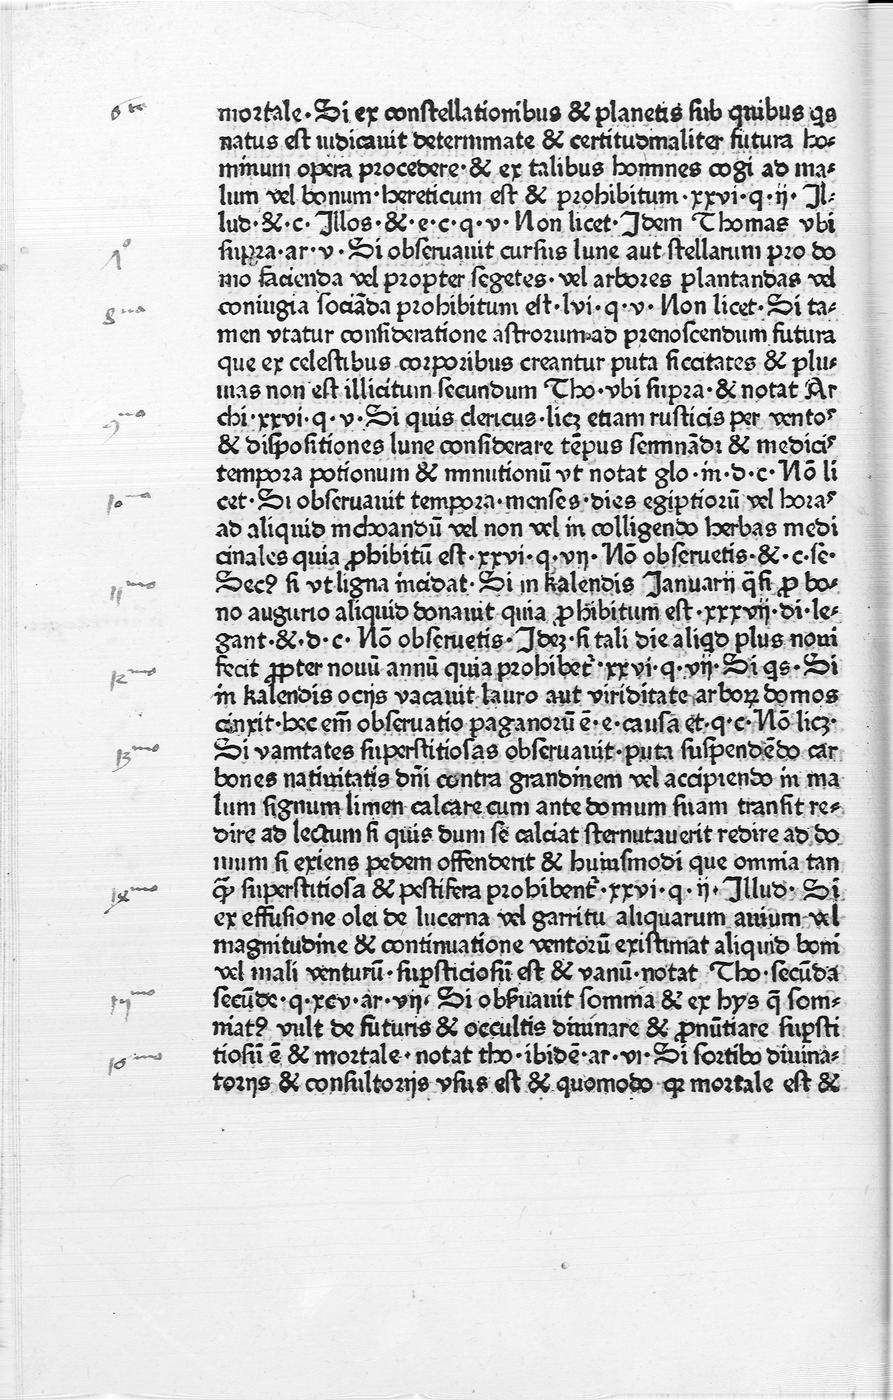 mortale·Si ex constellationibus & planetis sub quibus qs
natus est iudicauit determinate & certitudinaliter futura ho⸗
minum opera procedere·& ex talibus homines cogi ad ma⸗
lum vel bonum·hereticum est & prohibitum·xxvi·q·ij·Il⸗
lud·&·c·Illos·&·e·c·q·v·Non licet·Idem Thomas vbi
supra·ar·v·Si obseruauit cursus lune aut stellarum pro do
mo facienda vel propter segetes·vel arbores plantandas vel
coniugia sociāda prohibitum est·lvi·q·v·Non licet·Si ta⸗
men vtatur consideratione astrorum·ad prenoscendum futura
que ex celestibus corporibus creantur puta siccitates & plu⸗
uias non est illicitum secundum Tho·vbi supra·& notat Ar
chi·xxvi·q·v·Si quis clericus·licꝫ etiam rusticis per ventoˢ
& dispositiones lune considerare tēpus seminādi & mediciˢ
tempora potionum & minutionū vt notat glo·in·d·c·Nō li
cet·Si obseruauit tempora·menses·dies egiptiorū vel horaˢ
ad aliquid inchoandū vel non vel in colligendo herbas medi
cinales quia ꝓhibitū est·xxvi·q·vij·Nō obseruetis·&·c·se·
Secꝰ si vt ligna incidat·Si in kalendis Januarij q̄si ꝓ bo⸗
no augurio aliquid donauit quia ꝓhibitum est·xxxvij·di·le⸗
gant·&·d·c·Nō obseruetis·Ideꝫ·si tali die aliqd plus noui
fecit ꝓpter nouū annū quia prohibet᷑·xxvi·q·vij·Si qs·Si
in kalendis ocijs vacauit lauro aut viriditate arboꝝ domos
cinxit·hec em̄ obseruatio paganorū ē·e·causa et·q·c·Nō licꝫ·
Si vanitates superstitiosas obseruauit·puta suspendēdo car
bones natiuitatis dn̄i contra grandinem vel accipiendo in ma
lum signum limen calcare cum ante domum suam transit re⸗
dire ad lectum si quis dum se calciat sternutauerit redire ad do
mum si exiens pedem offenderit & huiusmodi que omnia tan
ꝙ̄ superstitiosa & pestifera prohibent᷑·xxvi·q·ij·Illud·Si
ex effusione olei de lucerna vel garritu aliquarum auium vel
magnitudine & continuatione ventorū existimat aliquid boni
vel mali venturū·suꝑsticiosū est & vanū·notat Tho·secūda
secūde·q·xcv·ar·vij·Si obẜuauit somnia & ex hys q̄ som⸗
niatꝰ vult de futuris & occultis diuinare & ꝓnūtiare suꝑsti
tiosū ē & mortale·notat tho·ibidē·ar·vi·Si sortibo diuina⸗
torijs & consultorijs vsus est & quomodo qꝛ mortale est &
6ta
10mo
11mo
12mo
13mo
14mo